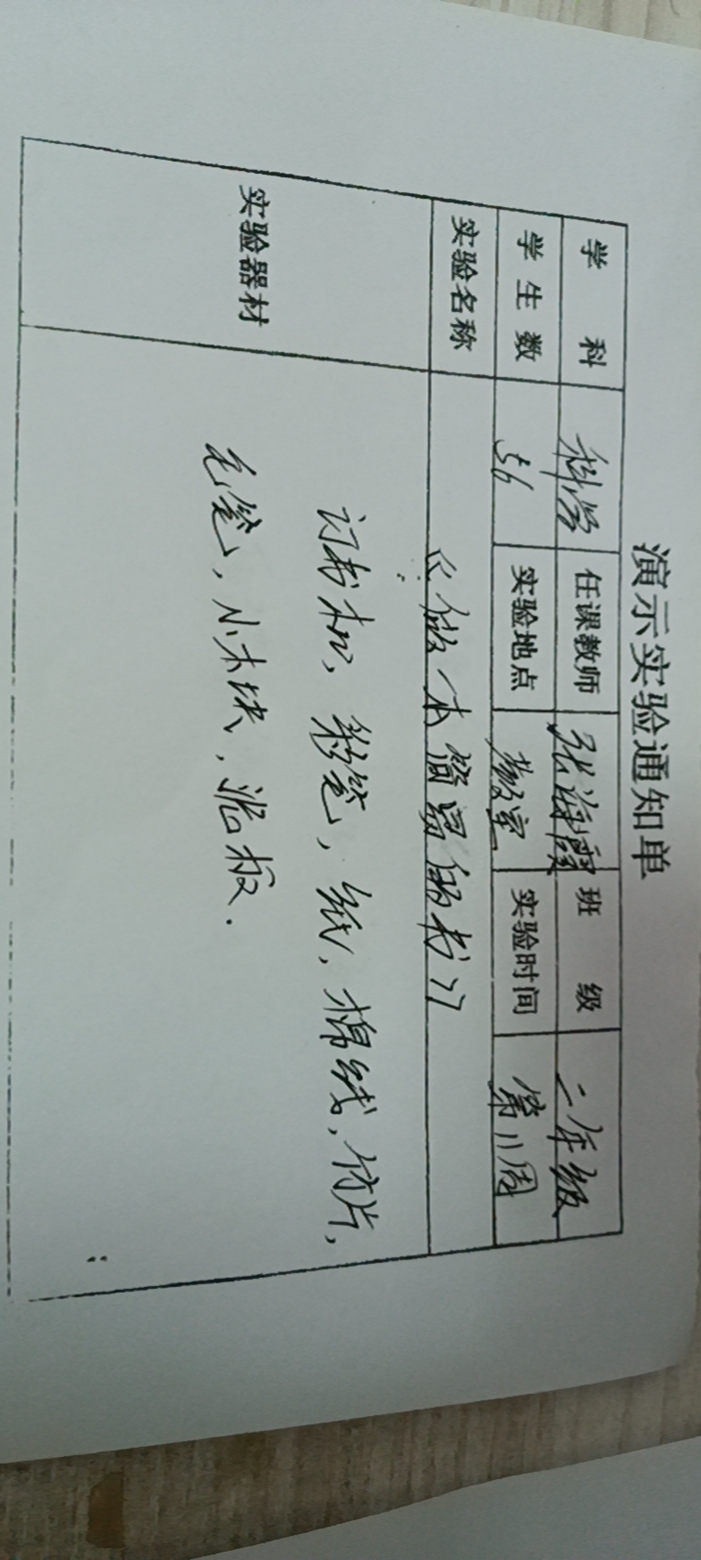 演示实验通知单
学 科 科学 任课教师 张海霞 班 级 二年级
学生数 56 实验地点 教室 实验时间 第11周
实验名称 《做一本简易的书》
实验器材 订书机，粉笔，纸，棉线，竹片，
毛笔，小木块，泥板.